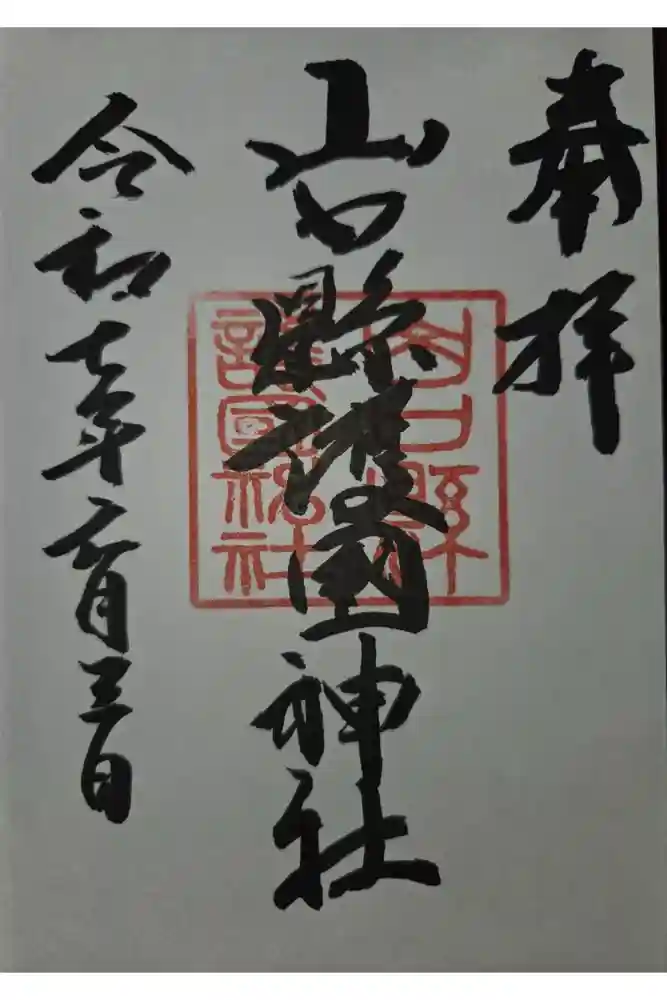 奉拝
山口縣護國神社
山口縣
護國神社
令和七年六月三日